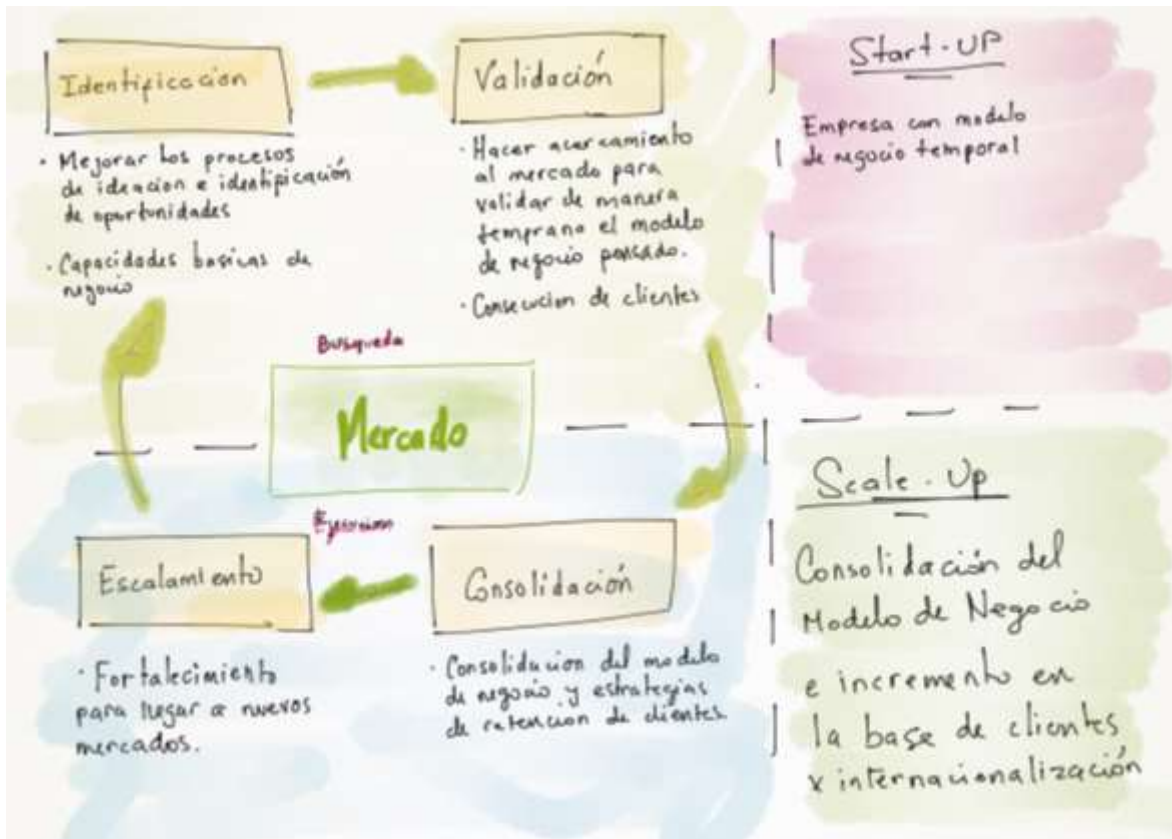 Identificacion
· Mejorar los procesos
de ideacion e identificación
de oportunidades
· Capacidades basicas de
negocio
Validación
· Hacer acercamiento
al mercado para
validar de manera
temprana el modelo
de negocio pensado.
· Consecucion de clientes
Start-UP
Empresa con modelo
de negocio temporal
Búsqueda
Mercado
Escalamiento
· Fortalecimiento
para llegar a nuevos
mercados.
Consolidación
· Consolidacion del modelo
de negocio y estrategias
de retención de clientes.
Scale-Up
Consolidación del
Modelo de Negocio
e incremento en
la base de clientes
x internacionalización